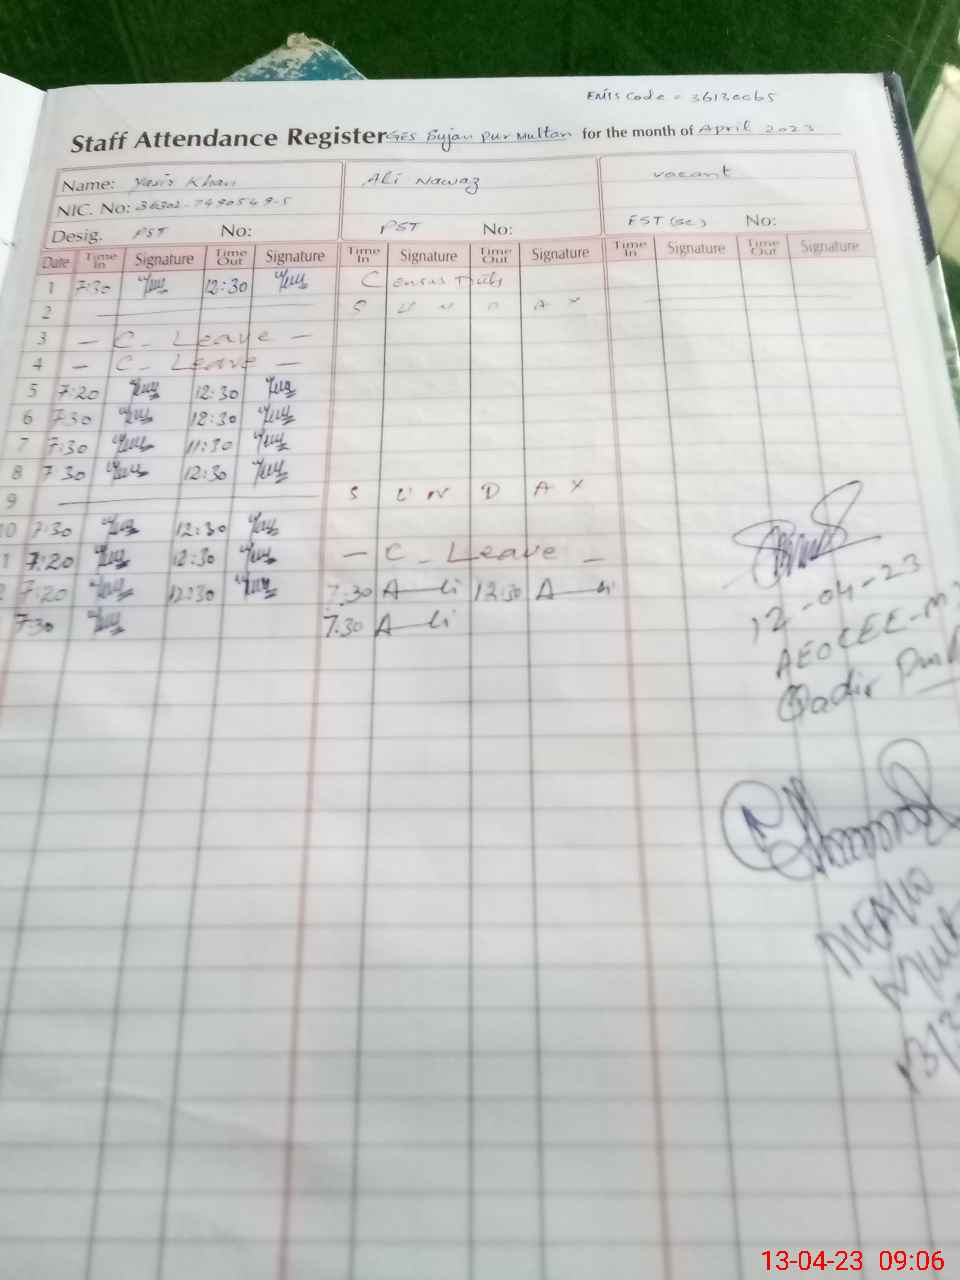 EMIS Code = 36130065
Staff Attendance Register GES Bujan Pur Multan for the month of April 2023
Name: Yasir Khan Ali Nawaz vacant
NIC. No: 36302-7490549-5
Desig. PST No: PST No: EST (Sc) No:
Date Time In Signature Time Out Signature Time In Signature Time Out Signature Time In Signature Time Out Signature
1 7:30 12:30 Census Duty
2 S U N D A Y
3 - C - Leave -
4 - C - Leave -
5 7:20 12:30
6 7:30 12:30
7 7:30 11:30
8 7:30 12:30
9 S U N D A Y
10 7:30 12:30
1 7:20 12:30 - C - Leave -
2 7:20 12:30 7:30 A li 12:30 A li
7:30 7:30 A li
12-04-23
AEO CEC-M
Qadir Pur
MEA
13-04-23 09:06